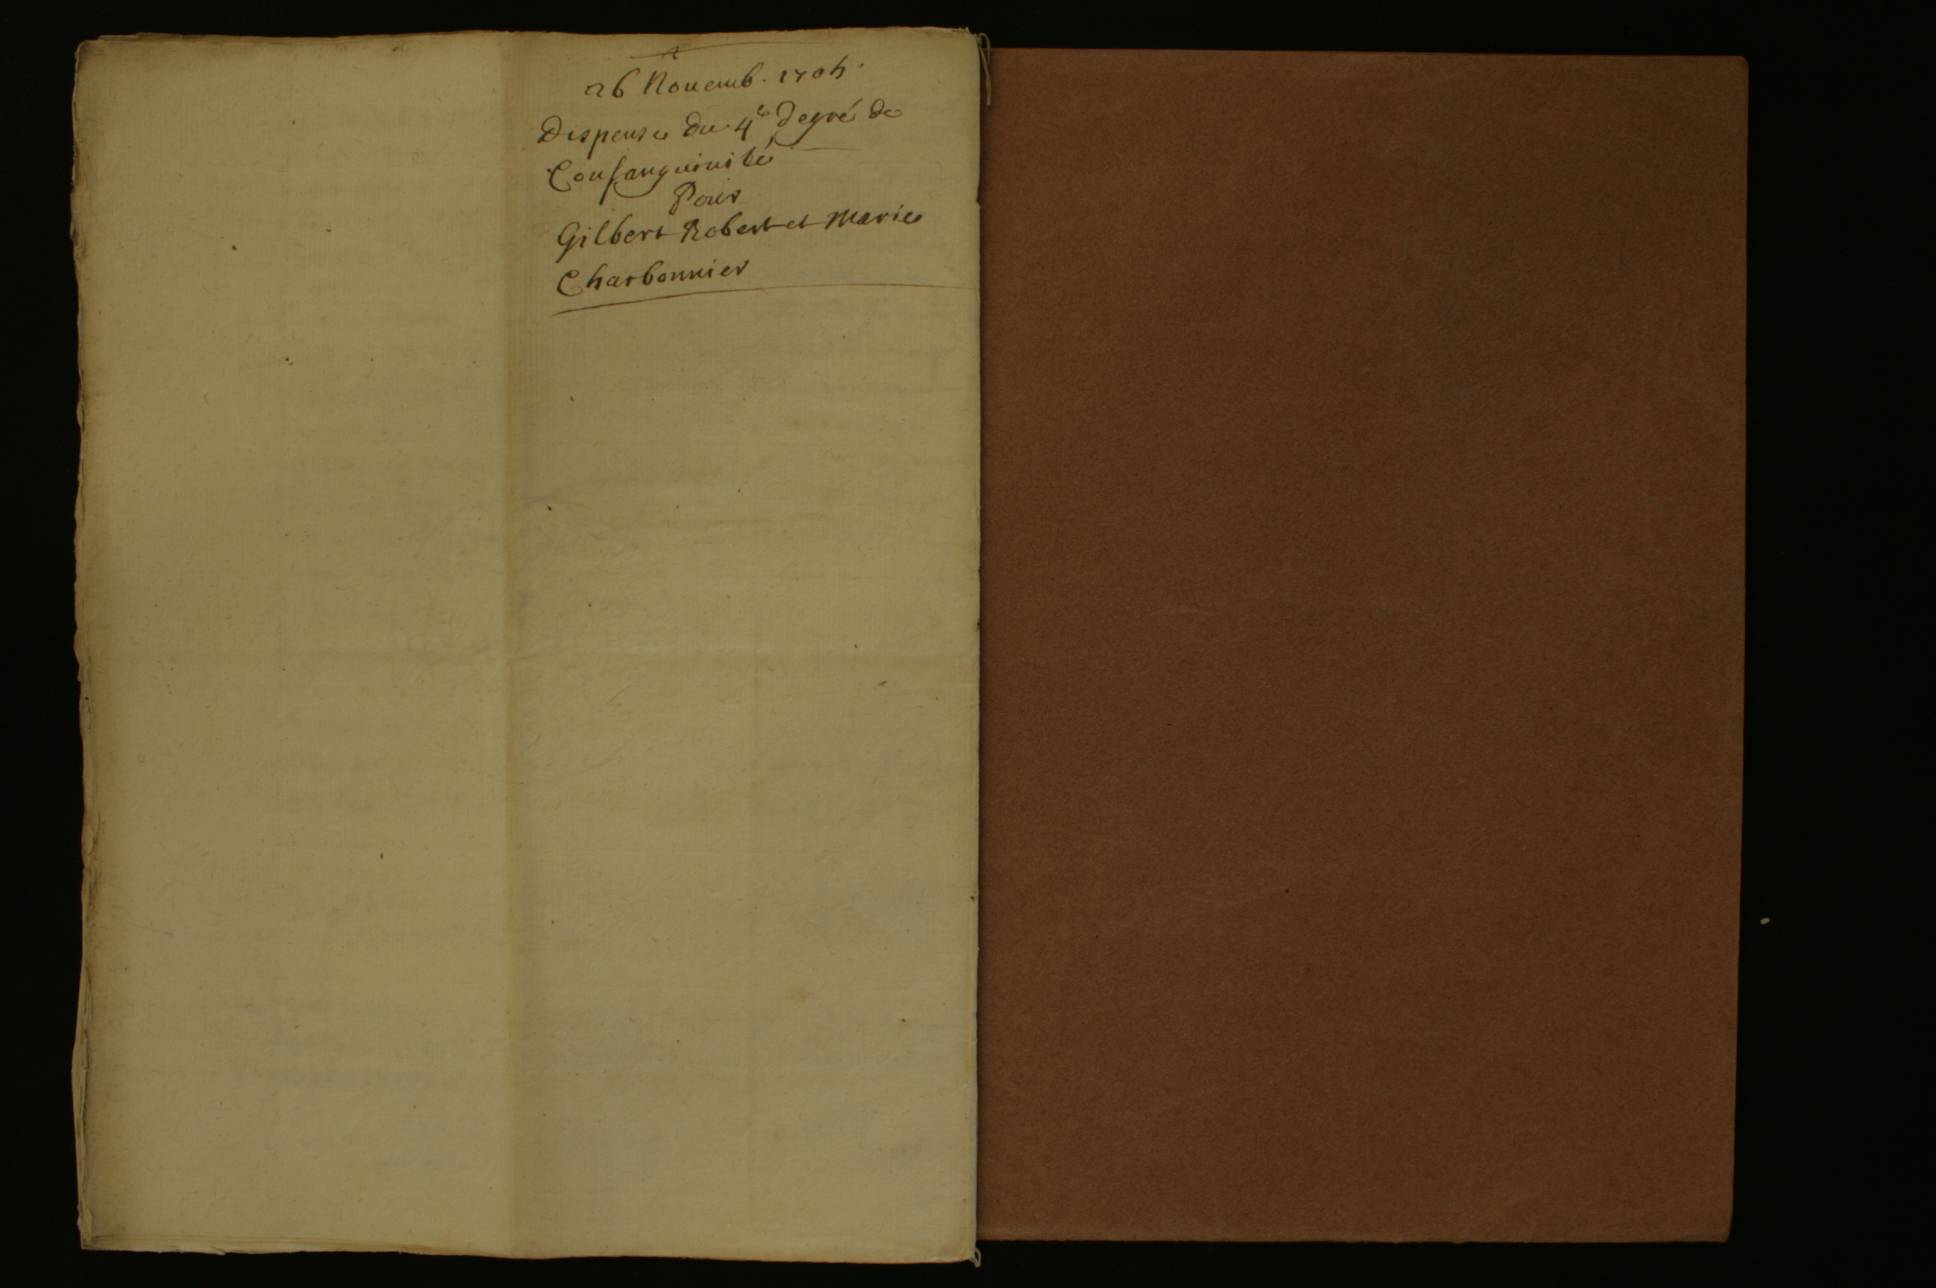 26 Nouemb. 1704.
Dispense du 4e degré de
Consanguinité
Pour
Gilbert Robert et Marie
Charbonnier